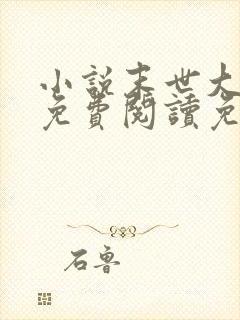 小說末世大
免費閱讀免
石魯